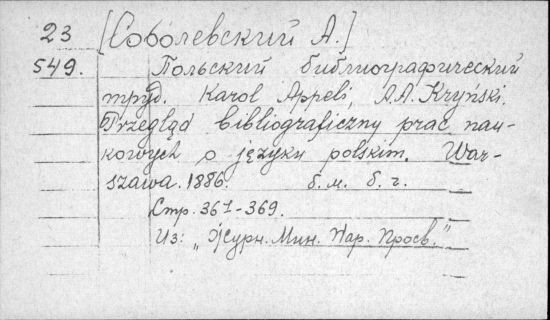 23 [Соболевский А.]
549. Польский библиографический
труд. Karol Appeli, A.A. Kryński.
Przegląd bibliograficzny prac nau-
kowych o języku polskim. War-
szawa. 1886. б. м. б. г.
Стр. 367-369.
Из: „Журн. Мин. Нар. Просв."